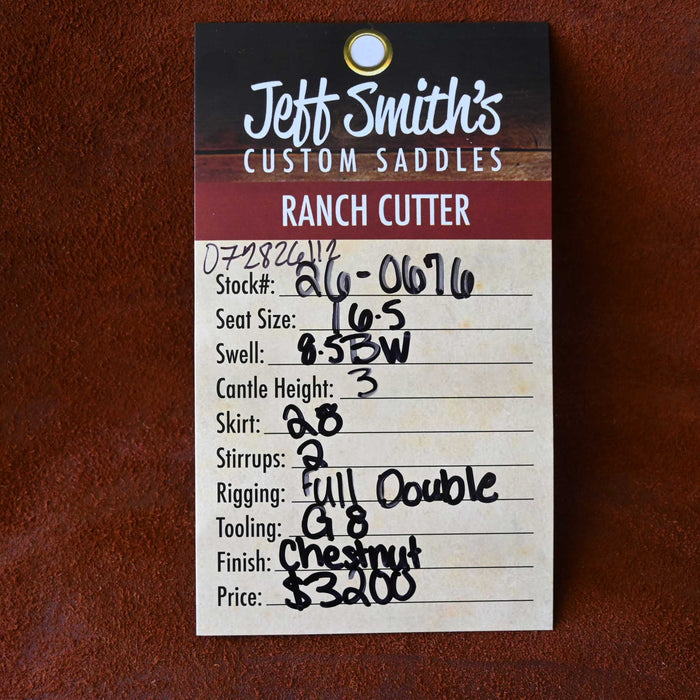 Jeff Smith's
CUSTOM SADDLES
RANCH CUTTER
072826112
Stock#: 26-0676
Seat Size: 16.5
Swell: 8.5BW
Cantle Height: 3
Skirt: 28
Stirrups: 2
Rigging: Full Double
Tooling: G8
Finish: Chestnut
Price: $3200